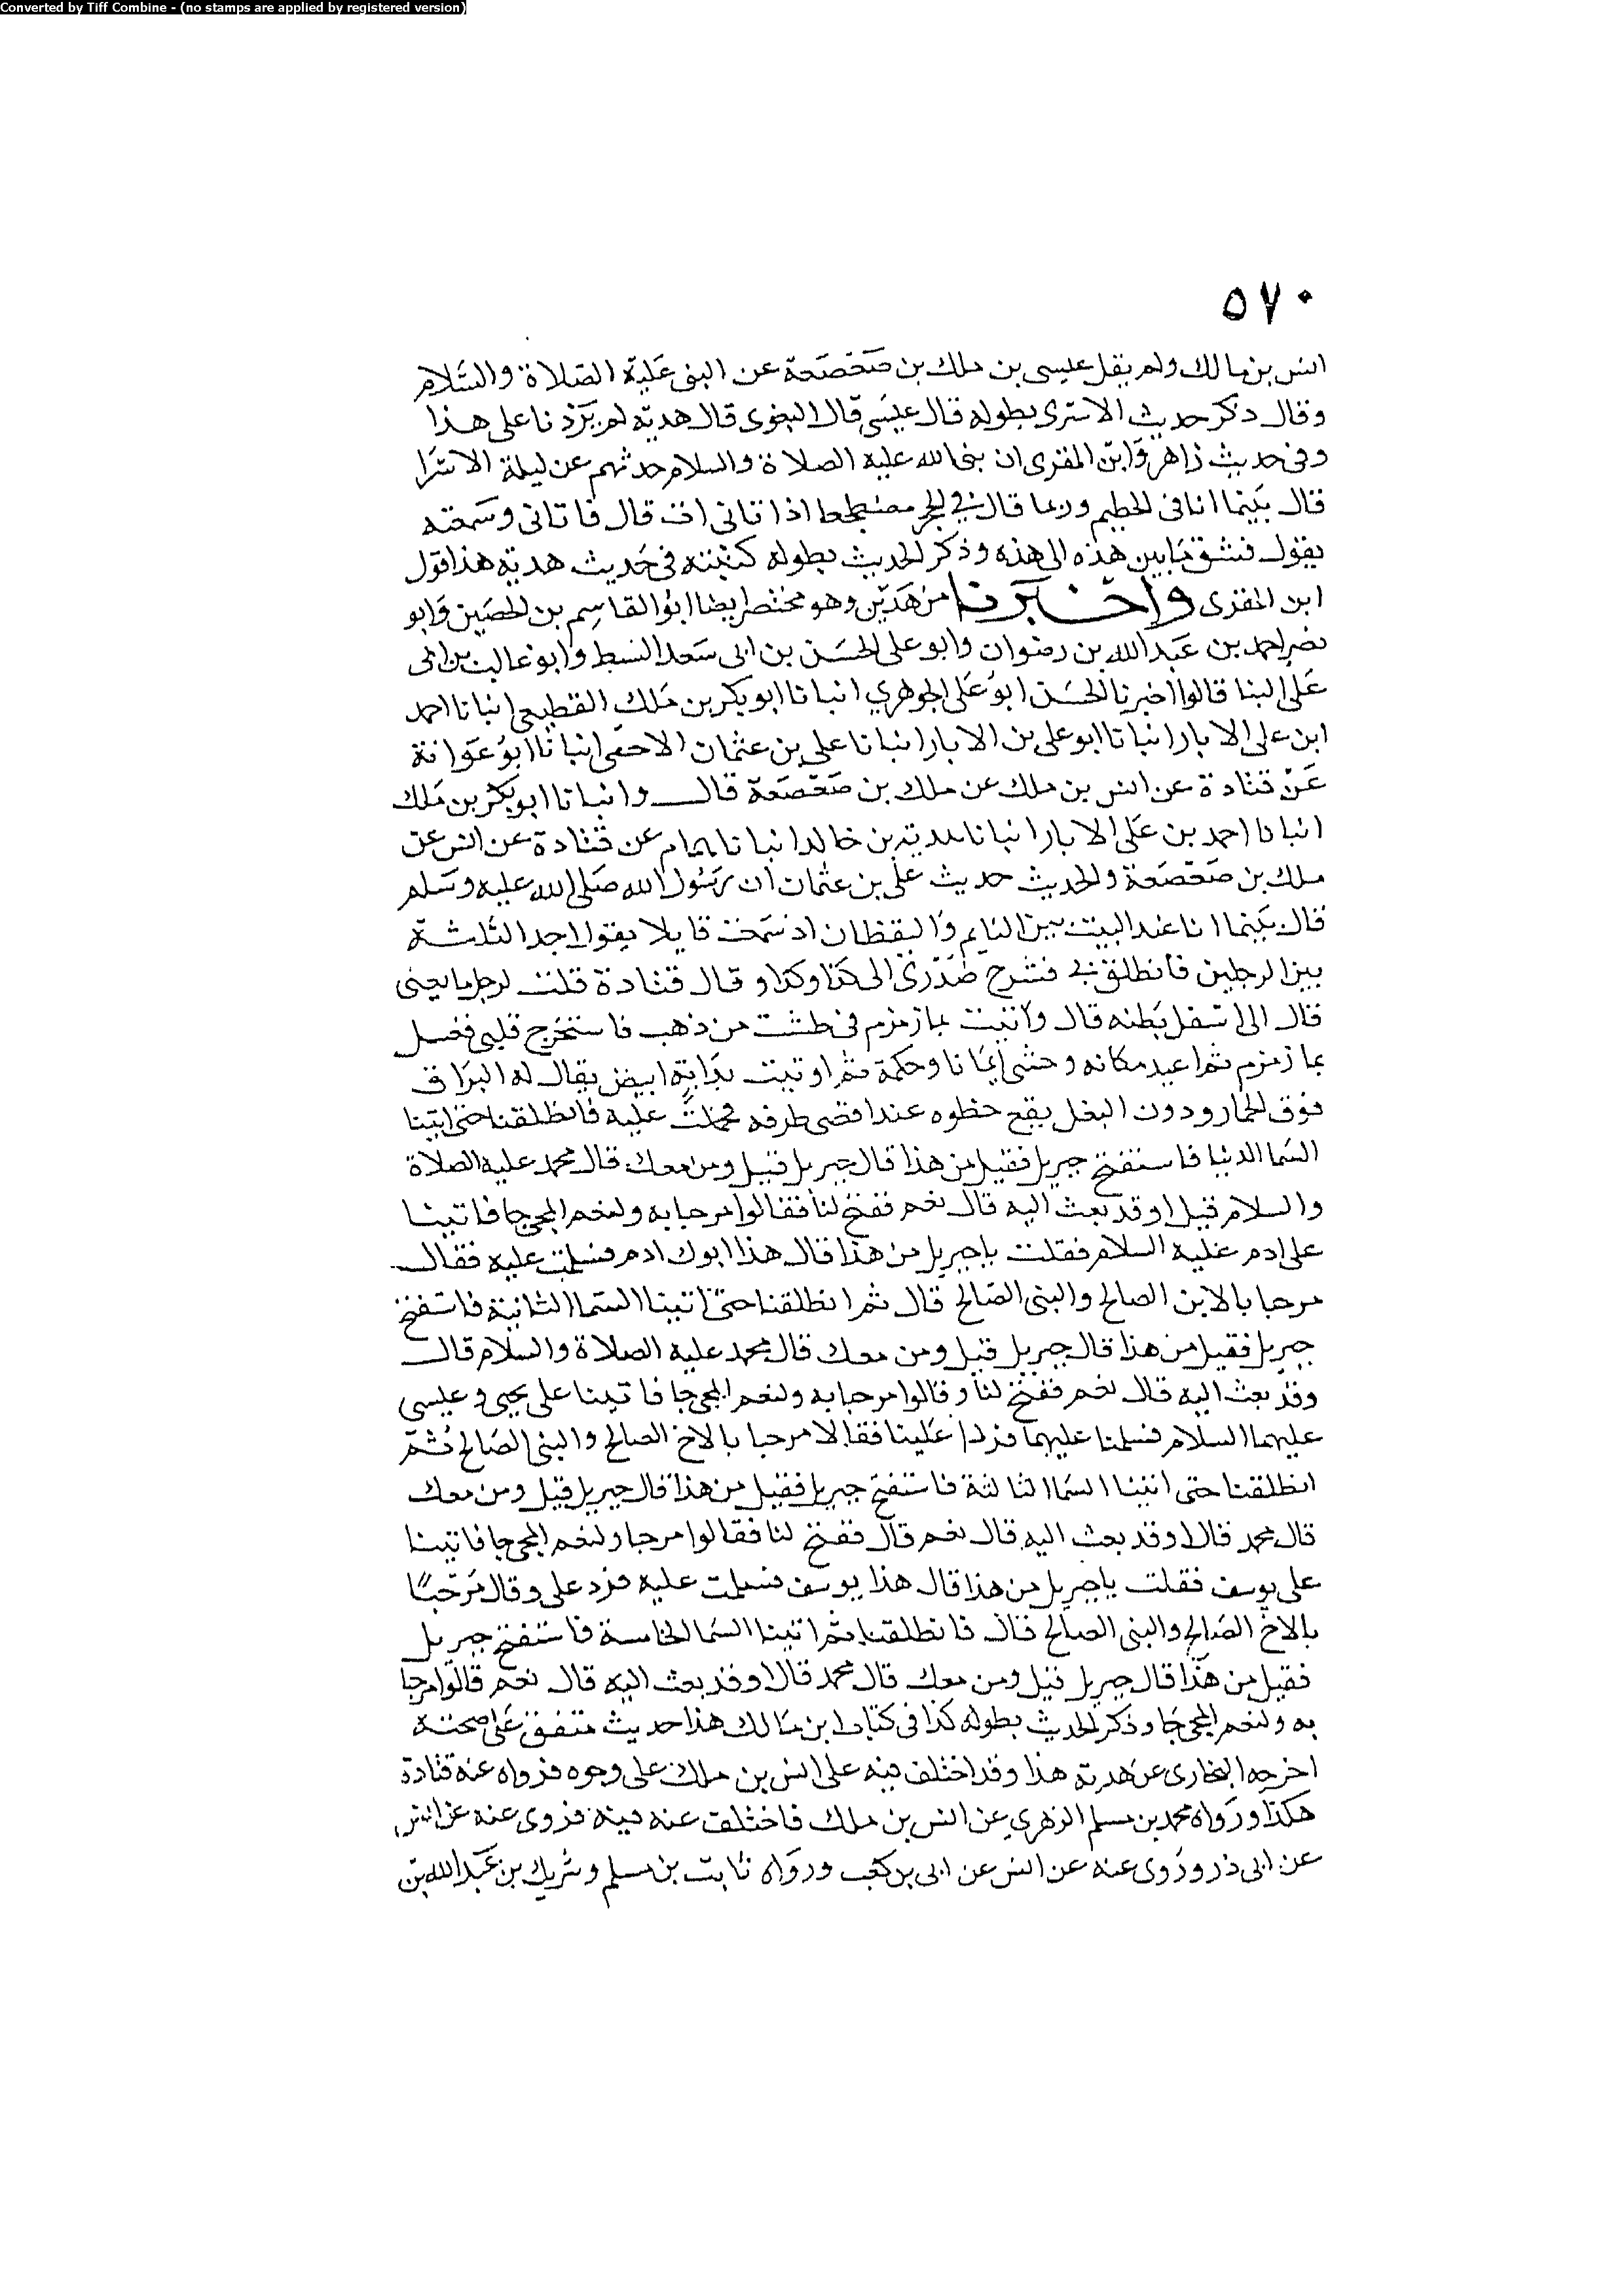 Converted by Tiff Combine - (no stamps are applied by registered version)
٥٧٠
انس بن مالك ولم يقل عيسى بن ملك بن صَعْصَعَة عن النبى عَليْه الصّلاة والسَّلام
وقال ذكر حديث الاسرى بطوله قال عيسَى قال البغوى قال هدبة لم يَزدْنا على هذا
وفى حديث زاهر وَابن المقرى ان نبى الله عليه الصلاة والسلام حدثهم عن ليلة الاسْرَا
قال بَيْنما انا فى الحطيم وربما قال فى الحجر مضطجعا اذا تانى ات قال فاتانى وسَمعته
يقول فشق مَا بين هذه الى هذه وذكر الحديث بطوله كتبته فى حَديث هدبة هذا قول
ابن المقرى واخبرنا من هَدَيْن وهو مختصر ايضا ابوُ القاسِم بن الحصَين وَابو
نصر احمد بن عَبد الله بن رضوان وابو على الحسَن بن ابى سَعد السبط وابو غالب بن ابى
عَلى البنا قالوا اخبرنا الحسَن ابوُ عَلى الجوهرى انبانا ابو بكر بن مَلك القطيعى انبانا احمد
ابن على الابار انبانا ابو على بن الابار انبانا على بن عثمان الاحقى انبانا ابوُ عَوانة
عَنْ قتادة عن انس بن ملك عن ملك بن صَعْصَعَة قال وانبانا ابو بكر بن مَلك
انبانا احمد بن عَلى الابار انبانا هدبة بن خالد انبانا همام عن قتادة عن انس عن
ملك بن صَعْصَعَة والحديث حديث عَلى بن عثمان ان رَسُول الله صَلى الله عليه وسَلم
قال بَيْنما انا عند البيت بين النايم وَاليقظان اذ سَمعت قايلا يقول احد الثلثة
بين الرجلين فانطلق بى فشرح صَدْرى الى كذا وكذا وقال قتادة قلت لرجل ما يعنى
قال الى اسْفل بَطنه قال وَاتيت بما زمزم فى طشت من ذهب فاستخرَج قلبى فغسل
بما زمزم ثم اعيد مكانه وحشى ايمَانا وحكمة ثم اوتيت بدَابة ابيض يقال له البرَاق
فوق الحمار ودون البغل يقع خطوه عند اقصى طرفه فحملتُ عليه فانطلقنا حتى اتينا
السَما الدنيا فاستفتح جبريل فقيل من هذا قال جبريل قيل ومن معك قال محمد عليه الصلاة
والسلام قيل اوقد بعث اليه قال نعم ففتح لنا فقالوا مرحبا به ولنعم المجى جا فاتينا
على ادم عَليه السلام فقلت ياجبريل من هذا قال هذا ابوك ادم فسلمت عليه فقال
مرحبا بالابن الصالح والنبى الصّالح قال ثم انطلقنا حتى اتينا السّما الثانية فاستفتح
جبريل فقيل من هذا قال جبريل قيل ومن معك قال محمد عليه الصلاة والسلام قال
وقد بعث اليه قال نعم ففتح لنا وقالوا مرحبا به ولنعم المجى جا فاتينا على يحيى وعيسى
عليهما السلام فسلمنا عليهما فردا عَلينا فقالا مرحبا بالاخ الصالح والنبى الصَالح ثمّ
انطلقنا حتى اتينا السَما الثالثة فاستفتح جبريل فقيل من هذا قال جبريل قيل ومن معك
قال محمد قال اوقد بعث اليه قال نعم قال ففتح لنا فقالوا مرحبا ولنعم المجى جا فاتينا
على يوسف فقلت ياجبريل من هذا قال هذا يوسف فسلمت عليه فرد على وقال مَرْحبًا
بالاخ الصَالح والنبى الصالح قال فانطلقنا ثم اتينا السَما الخامسة فاستفتح جبريل
فقيل من هذا قال جبريل قيل ومن معك قال محمد قال اوقد بعث اليه قال نعم قالوا مرحبا
به ولنعم المجى جَا وذكر الحديث بطوله كذا فى كتاب ابن مَالك هذا حديث متفق عَلى صحته
اخرجه البخارى عن هدبة هذا وقد اختلف فيه على انس بن ملك على وجوه فرواه عنه قتادة
هكذا ورَواه محمد بن مسلم الزهرى عن انس بن ملك فاختلف عنه فيه فروى عنه عن انس
عن ابى ذر ورُوى عنه عن انس عن ابى بن كعب وروَاه ثابت بن مسلم وشريك بن عَبد الله بن